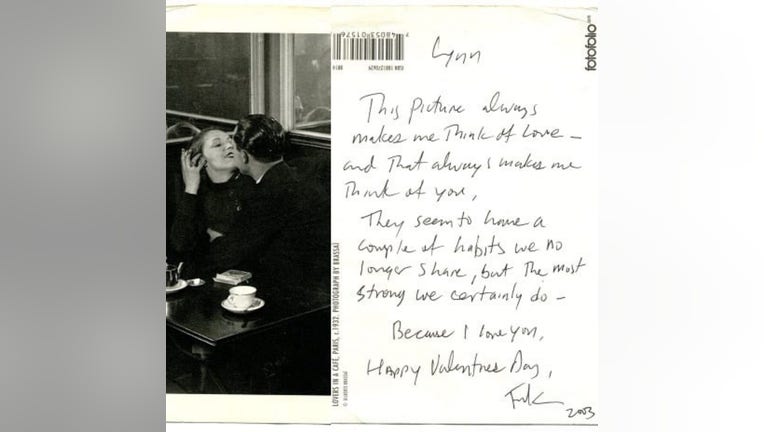 Lynn
This picture always
makes me Think of Love –
and That always makes me
Think of you,
They seem to have a
couple of habits we no
longer share, but The most
strong we certainly do –
Because I love you,
Happy Valentines Day,
2003
fotofolio
LOVERS IN A CAFÉ, PARIS, c.1932. PHOTOGRAPH BY BRASSAÏ